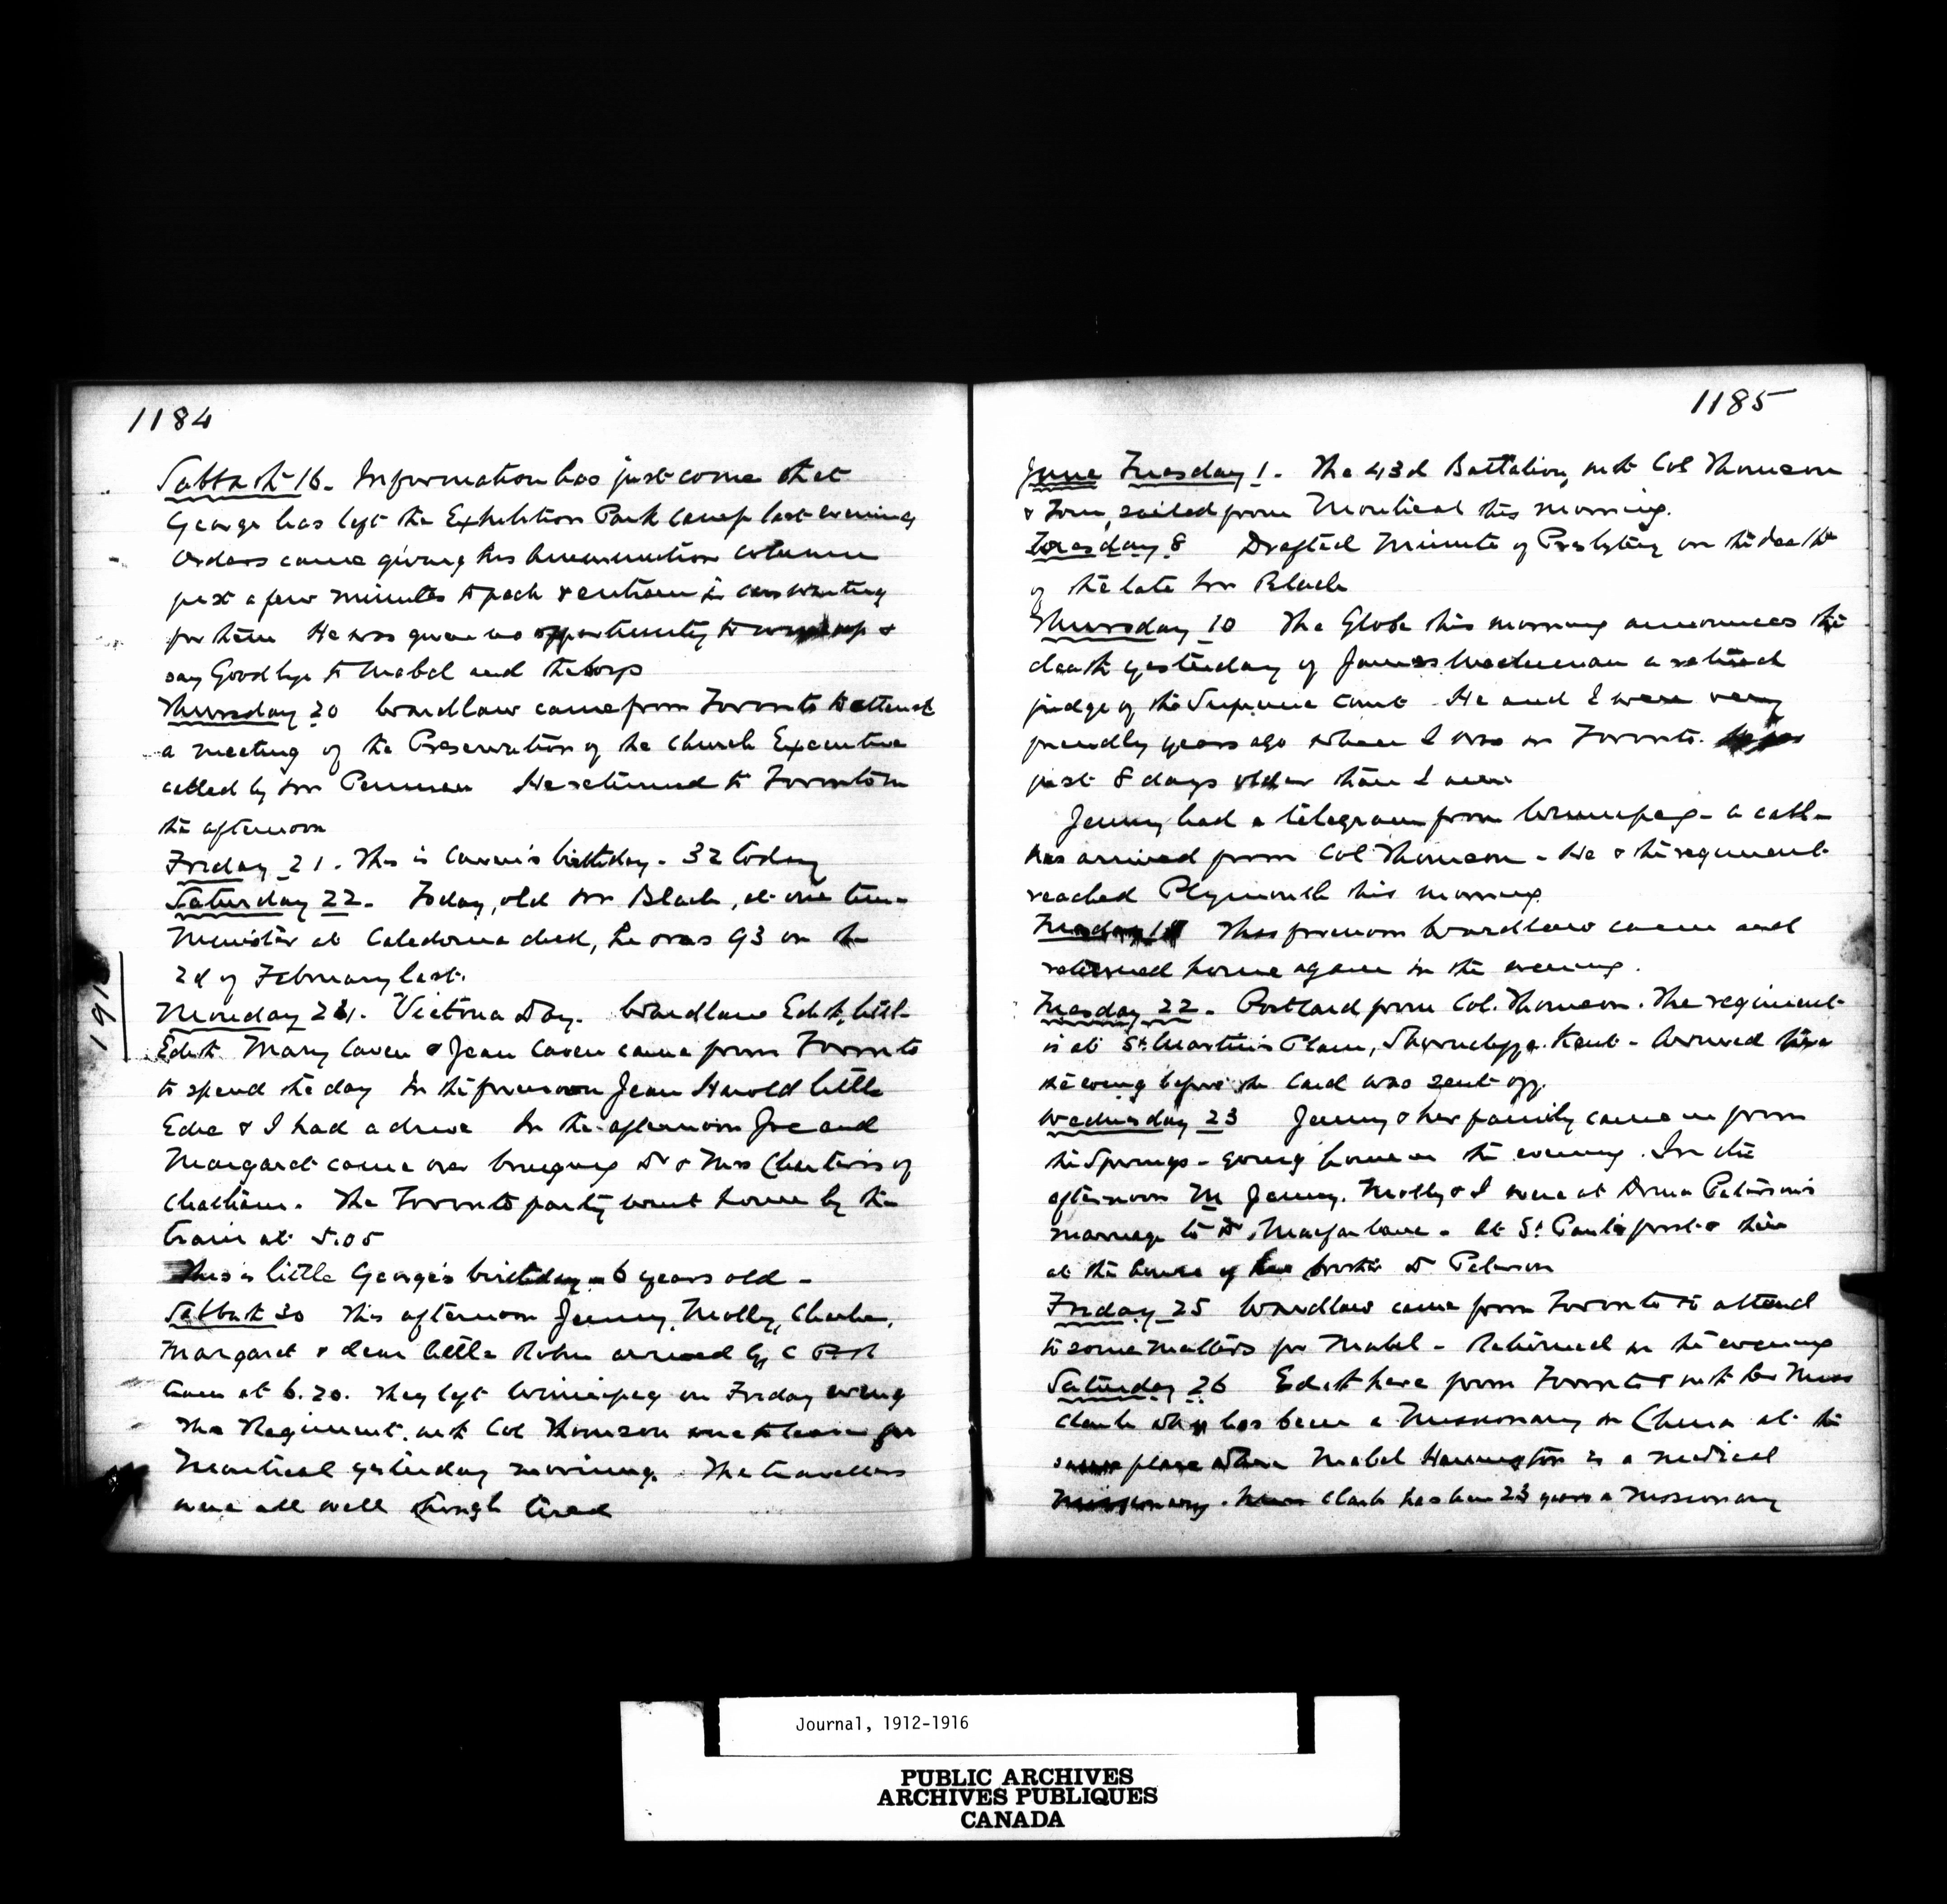 1184
Sabbath 16. Information has just come that
George has left the Exhibition Park Camp last evening
Orders came giving his Ammunition Column
just a few minutes to pack & entrain in cars waiting
for them He was given no opportunity to &
say Goodbye to Mabel and the boys
Thursday 20 Wardlaw came from Toronto to attend
a meeting of the Preservation of the Church Executive
called by Mr Penman He returned to Toronto in
the afternoon
Friday 21. This is Caven's birthday - 32 today
Saturday 22. Today, old Mr Black, at one time
Minister at Caledonia died, he was 93 on the
2d of February last.
1915
Monday 24. Victoria Day. Wardlaw Edith, little
Edith Mary Caven & Jean Caven came from Toronto
to spend the day In the forenoon Jean Harold little
Edie & I had a drive In the afternoon Joe and
Margaret came over bringing Dr & Mrs Charteris of
Chatham. The Toronto party went home by the
train at 5.05
This is little George's birthday - 6 years old -
Sabbath 30 This afternoon Jenny, Molly, Charlie,
Margaret & dear little Robin arrived by C P R
train at 6.20. They left Winnipeg on Friday evening
The Regiment, with Col Thomson were to leave for
Montreal yesterday morning. The travellers
were all well though tired
1185
June Tuesday 1. The 43d Battalion, with Col Thomson
& Tom, sailed from Montreal this morning.
Tuesday 8 Drafted Minute of Presbytery on the death
of the late Mr Black
Thursday 10 The Globe this morning announces the
death yesterday of James Maclennan a retired
judge of the Supreme Court He and I were very
friendly years ago when I was in Toronto.
just 8 days older than I am.
Jenny had a telegram from Winnipeg - a cable
has arrived from Col Thomson - He & the regiment
reached Plymouth this morning
Tuesday This forenoon Wardlaw came and
returned home again in the evening.
Tuesday 22. Postcard from Col. Thomson. The regiment
is at St Martin's Plain, Shorncliffe. Kent - Arrived there
the evening before the Card was sent off.
Wednesday 23 Jenny & her family came in from
the Springs - going home in the evening. In the
afternoon M Jenny, Molly & I were at Peterson's
marriage to Dr. Macfarlane - at St Paul's first & then
at the house of her brother Dr Peterson
Friday 25 Wardlaw came from Toronto to attend
to some matters for Mabel - Returned in the evening
Saturday 26 Edith here from Toronto & with her Miss
Clark who has been a Missionary in China at the
same place where Mabel Hannington is a medical
Missionary. Miss Clark has been 23 years a Missionary
Journal, 1912-1916
PUBLIC ARCHIVES
ARCHIVES PUBLIQUES
CANADA